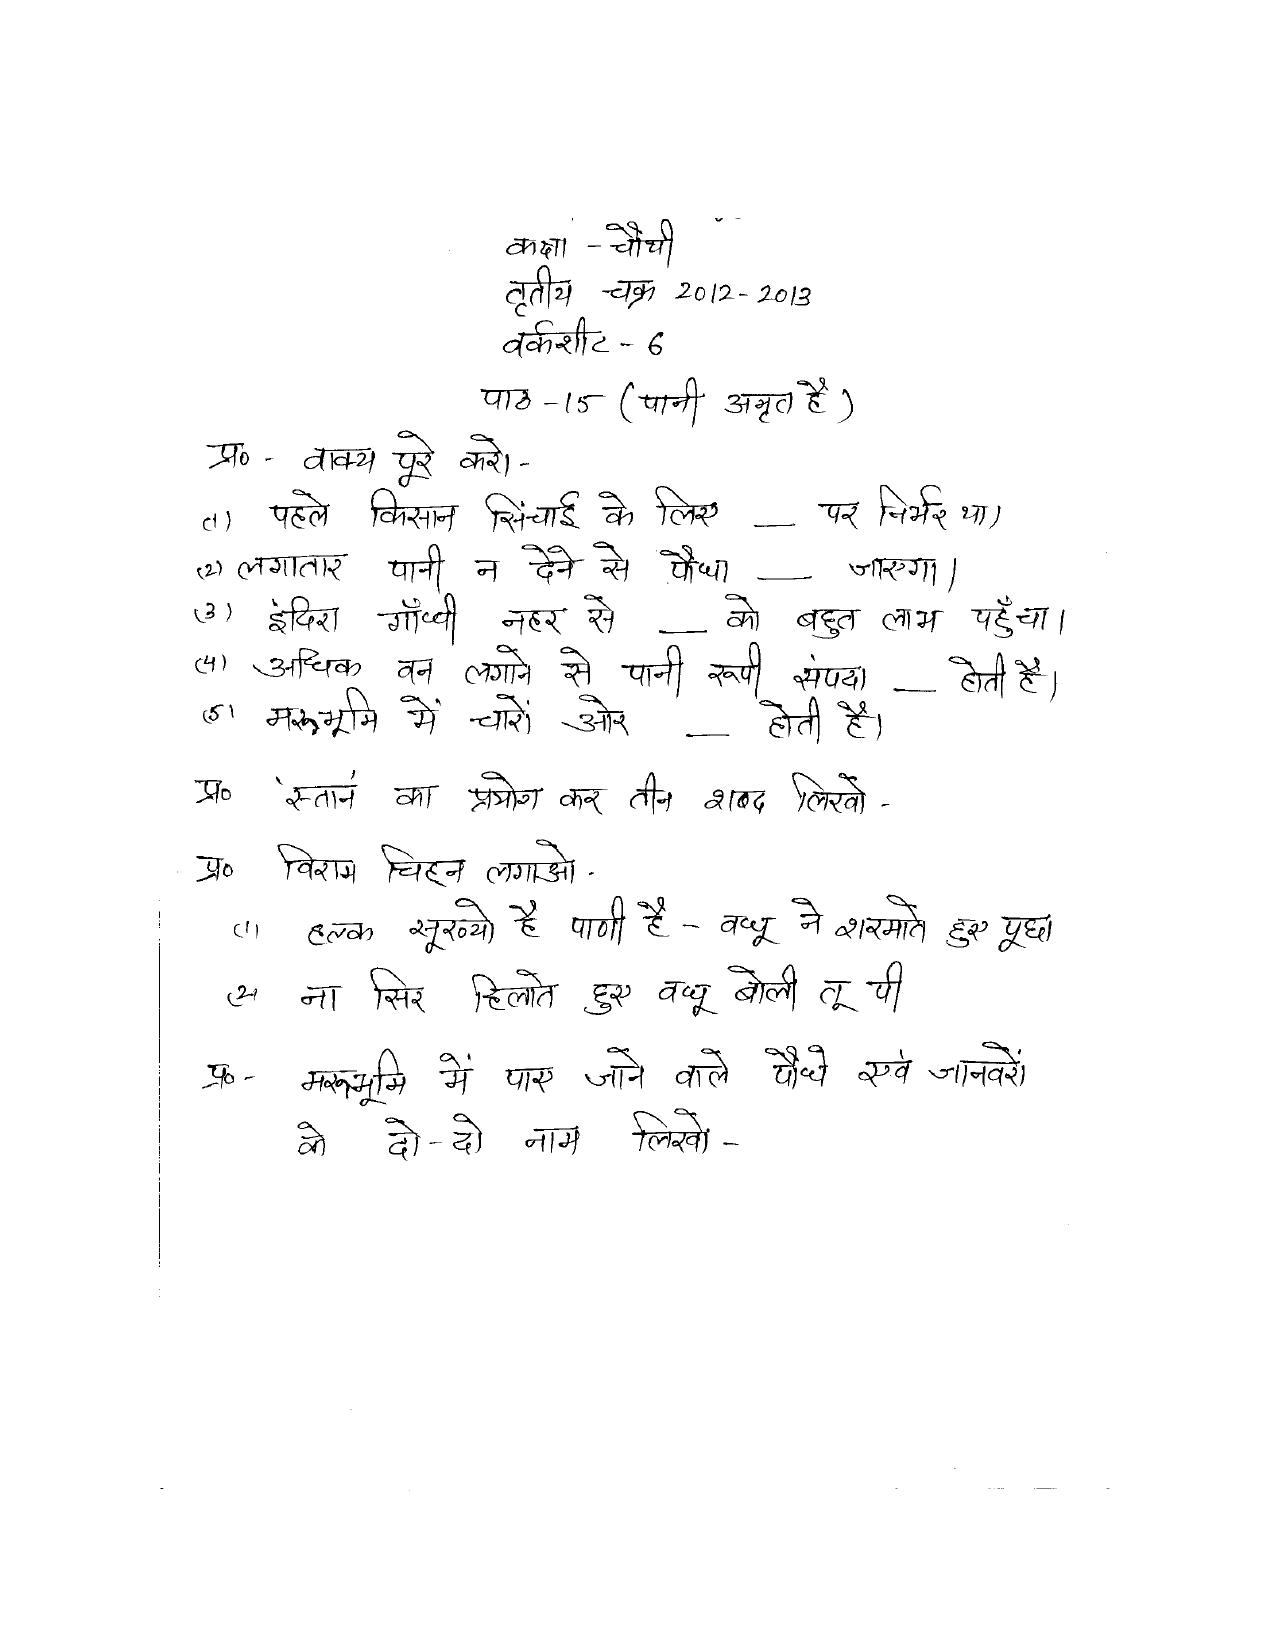 कक्षा - चौथी
तृतीय चक्र 2012-2013
वर्कशीट - 6
पाठ -15 (पानी अमृत है)
प्र० - वाक्य पूरे करो -
(1) पहले किसान सिंचाई के लिए __ पर निर्भर था।
(2) लगातार पानी न देने से पौधा __ जाएगा।
(3) इंदिरा गाँधी नहर से __ को बहुत लाभ पहुँचा।
(4) अधिक वन लगाने से पानी रूपी संपदा __ होती है।
(5) मरूभूमि में चारों ओर __ होती है।
प्र० 'स्तान' का प्रयोग कर तीन शब्द लिखो -
प्र० विराम चिह्न लगाओ -
(1) हलक सूख्यो है पाणी है - वधू ने शरमाते हुए पूछा
(2) ना सिर हिलाते हुए वधू बोली तू पी
प्र० - मरूभूमि में पाए जाने वाले पौधे एवं जानवरों
के दो-दो नाम लिखो -